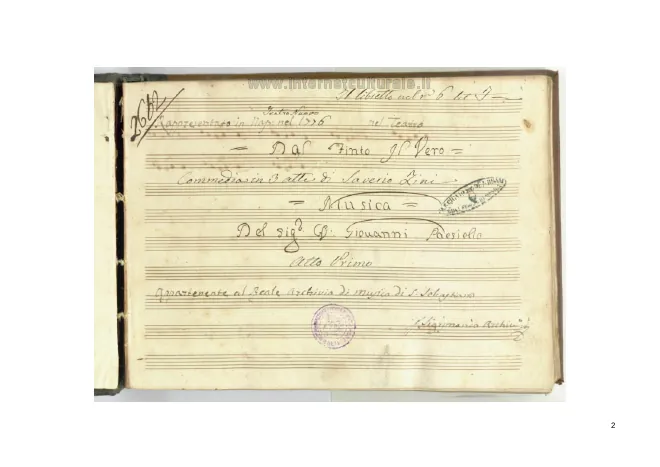 www.internetculturale.it
Il libretto nel n° 6 let
2662
Teatro Nuovo
Rappresentato in Napoli nel 1776 nel Teatro
= Dal Finto Il Vero =
Commedia in 3 atti di Saverio Zini
= Musica =
Del sig.e D. Giovanni Paesiello
Atto Primo
Appartenente al Reale Archivio di musica di S. Sebastiano
Sigismondo
2